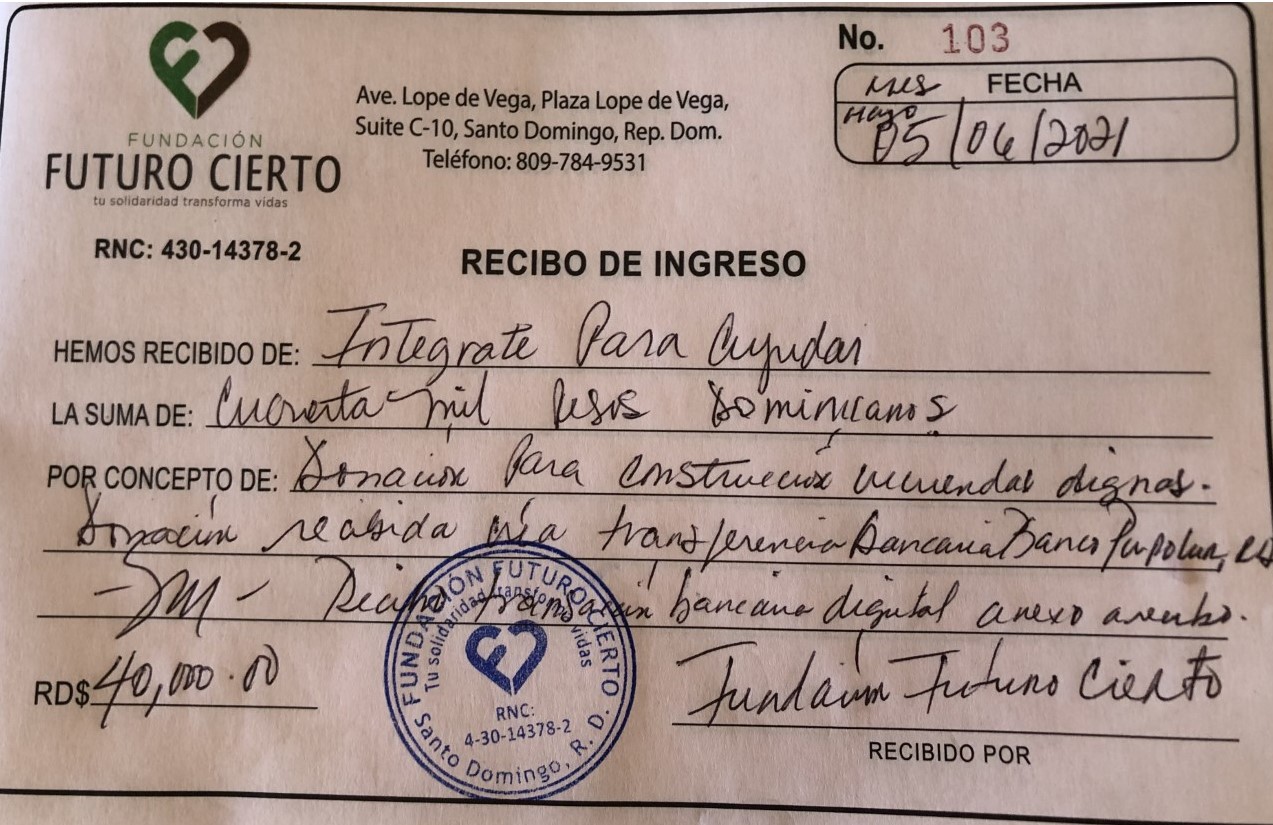 No. 103
mes FECHA
Mayo
05/06/2021
FUNDACIÓN
FUTURO CIERTO
tu solidaridad transforma vidas
RNC: 430-14378-2
Ave. Lope de Vega, Plaza Lope de Vega,
Suite C-10, Santo Domingo, Rep. Dom.
Teléfono: 809-784-9531
RECIBO DE INGRESO
HEMOS RECIBIDO DE: Integrate Para Ayudar
LA SUMA DE: Cuarenta mil Pesos Dominicanos
POR CONCEPTO DE: Donación Para construcción viviendas dignas.
Donación recibida vía transferencia Bancaria Banco Popular, RD
Recibo transacción bancaria digital anexo a recibo.
RD$ 40,000.00
Fundación Futuro Cierto
RECIBIDO POR
FUNDACIÓN FUTURO CIERTO
Tu solidaridad transforma vidas
RNC:
4-30-14378-2
Santo Domingo, R. D.